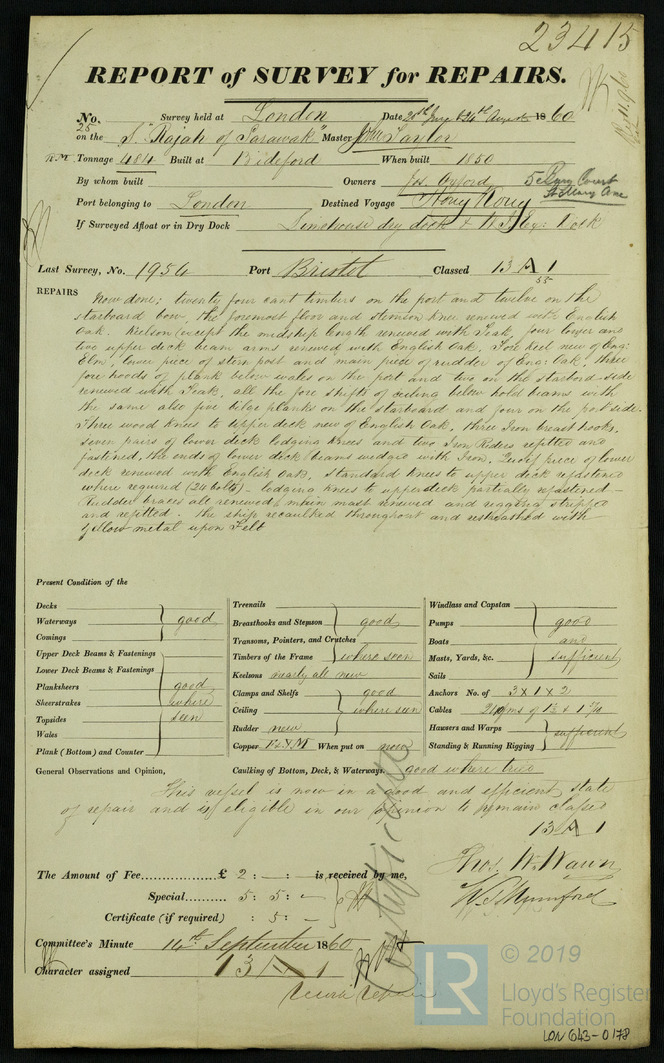 23415
REPORT of SURVEY for REPAIRS.
No. Survey held at London Date 1860
25
on the S. "Rajah of Sarawak" Master John Taylor
N.M. Tonnage 484 Built at Bideford When built 1850
By whom built Owners Jos. Ayford
St Mary Axe
Port belonging to London Destined Voyage Hong Kong
If Surveyed Afloat or in Dry Dock Limehouse dry dock & W. I. Exp: Dock
Last Survey, No. 1956 Port Bristol Classed 13 A 1
53
REPAIRS Now done; twenty four cant timbers on the port and twelve on the
starboard bow, the foremost floor and stemson knee renewed with English
Oak. Keelson (except the midship length renewed with Teak, four lower and
two upper deck beam arms renewed with English Oak. Fore keel new of Eng:
Elm, lower piece of stern post and main piece of rudder of Eng: Oak, three
fore hoods of plank below wales on the port and two on the starbord side
renewed with Teak, all the fore shifts of ceiling below hold beams with
the same also five bilge planks on the starboard and four on the port side.
Three wood knees to upper deck new of English Oak, three Iron breast hooks,
seven pairs of lower deck lodging knees and two Iron Riders refitted and
fastened, the ends of lower deck beams wedged with Iron, piece of lower
deck renewed with English Oak, Standard knees to upper deck refastened
where required (24 bolts). lodging knees to upper deck partially refastened —
Rudder braces all renewed, main mast renewed and rigging stripped
and refitted. the ship recaulked throughout and resheathed with
yellow metal upon Felt
Present Condition of the
Decks
Waterways good
Comings
Upper Deck Beams & Fastenings
Lower Deck Beams & Fastenings
Planksheers good
Sheerstrakes where
Topsides seen
Wales
Plank (Bottom) and Counter
Treenails
Breasthooks and Stepson good
Transoms, Pointers, and Crutches
Timbers of the Frame where seen
Keelsons nearly all new
Clamps and Shelfs good
Ceiling where seen
Rudder new
Copper F & YM When put on new
Windlass and Capstan
Pumps good
Boats and
Masts, Yards, &c. sufficient
Sails
Anchors No. of 3 x 1 x 2
Cables
Hawsers and Warps sufficient
Standing & Running Rigging
General Observations and Opinion, Caulking of Bottom, Deck, & Waterways. good where tried
This vessel is now in a good and efficient state
of repair and is eligible in our opinion to remain classed
13 A 1
The Amount of Fee................£ 2 : — : — is received by me,
Special.......... 5 : 5 : —
Certificate (if required) : 5 : —
Certificate
Thos. W. Wawn
W. T. Mumford
Committee's Minute 14th September 1860
Character assigned 13 A 1
© 2019
LR
Lloyd's Register
Foundation
LON 643-0178